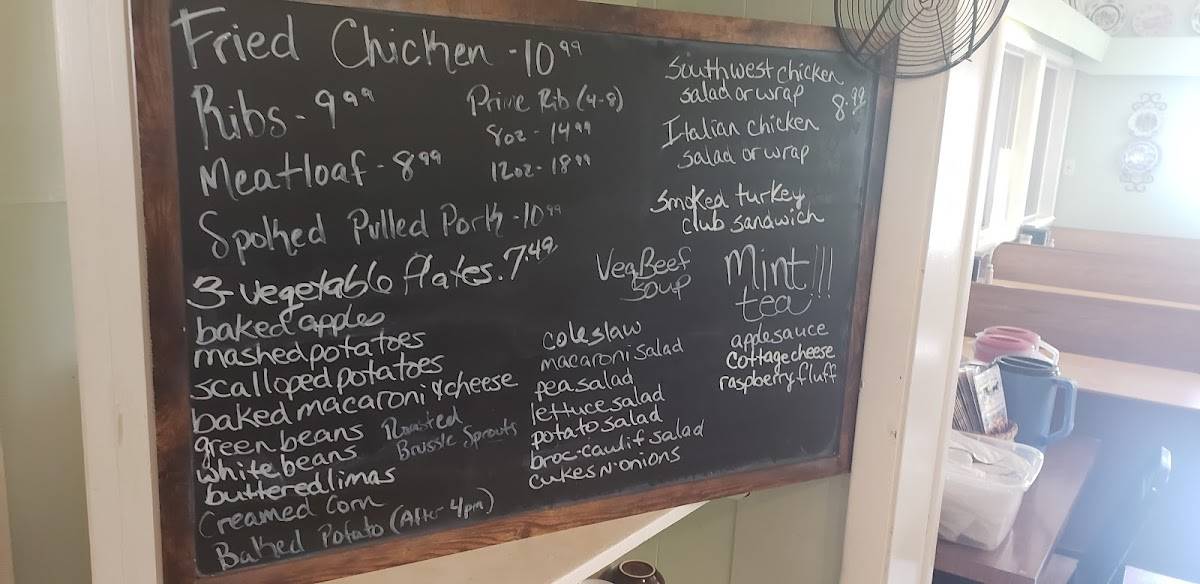 Fried Chicken - 10 99
Ribs - 9 99
Meatloaf - 8 99
Spoked Pulled Pork - 10 99
3-vegetable plates. 7.49
Prime Rib (4-8)
8oz - 14 99
12oz - 18 99
Southwest chicken
salad or wrap 8.99
Italian chicken
salad or wrap
Smoked turkey
club sandwich
Veg Beef
Soup
Mint!!!
tea
baked apples
mashed potatoes
scalloped potatoes
baked macaroni & cheese
green beans
white beans
buttered limas
Creamed Corn
Baked Potato (After 4pm)
Roasted
Brussle Sprouts
coleslaw
macaroni salad
pea salad
lettuce salad
potato salad
broc-caulif salad
cukes n' onions
applesauce
cottage cheese
raspberry fluff